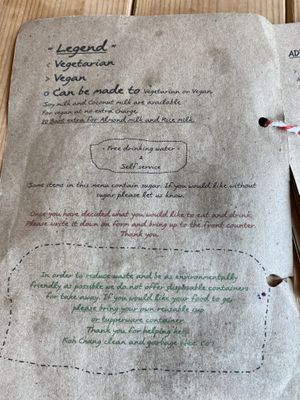 - Legend -
< Vegetarian
> Vegan
o Can be made to Vegetarian or Vegan,
Soy milk and Coconut milk are available
For vegan at no extra charge
20 Baht extra for Almond milk and Rice milk
- Free drinking water -
&
Self service
Some items in this menu contain sugar. If you would like without
sugar please let us know.
Once you have decided what you would like to eat and drink.
Please write it down on form and bring up to the front counter.
Thank you.
In order to reduce waste and be as environmentally
friendly as possible we do not offer disposable containers
for take away. If you would like your food to go,
please bring your own reusable cup
or tupperware container.
Thank you for helping keep
Koh Chang clean and garbage free
AD